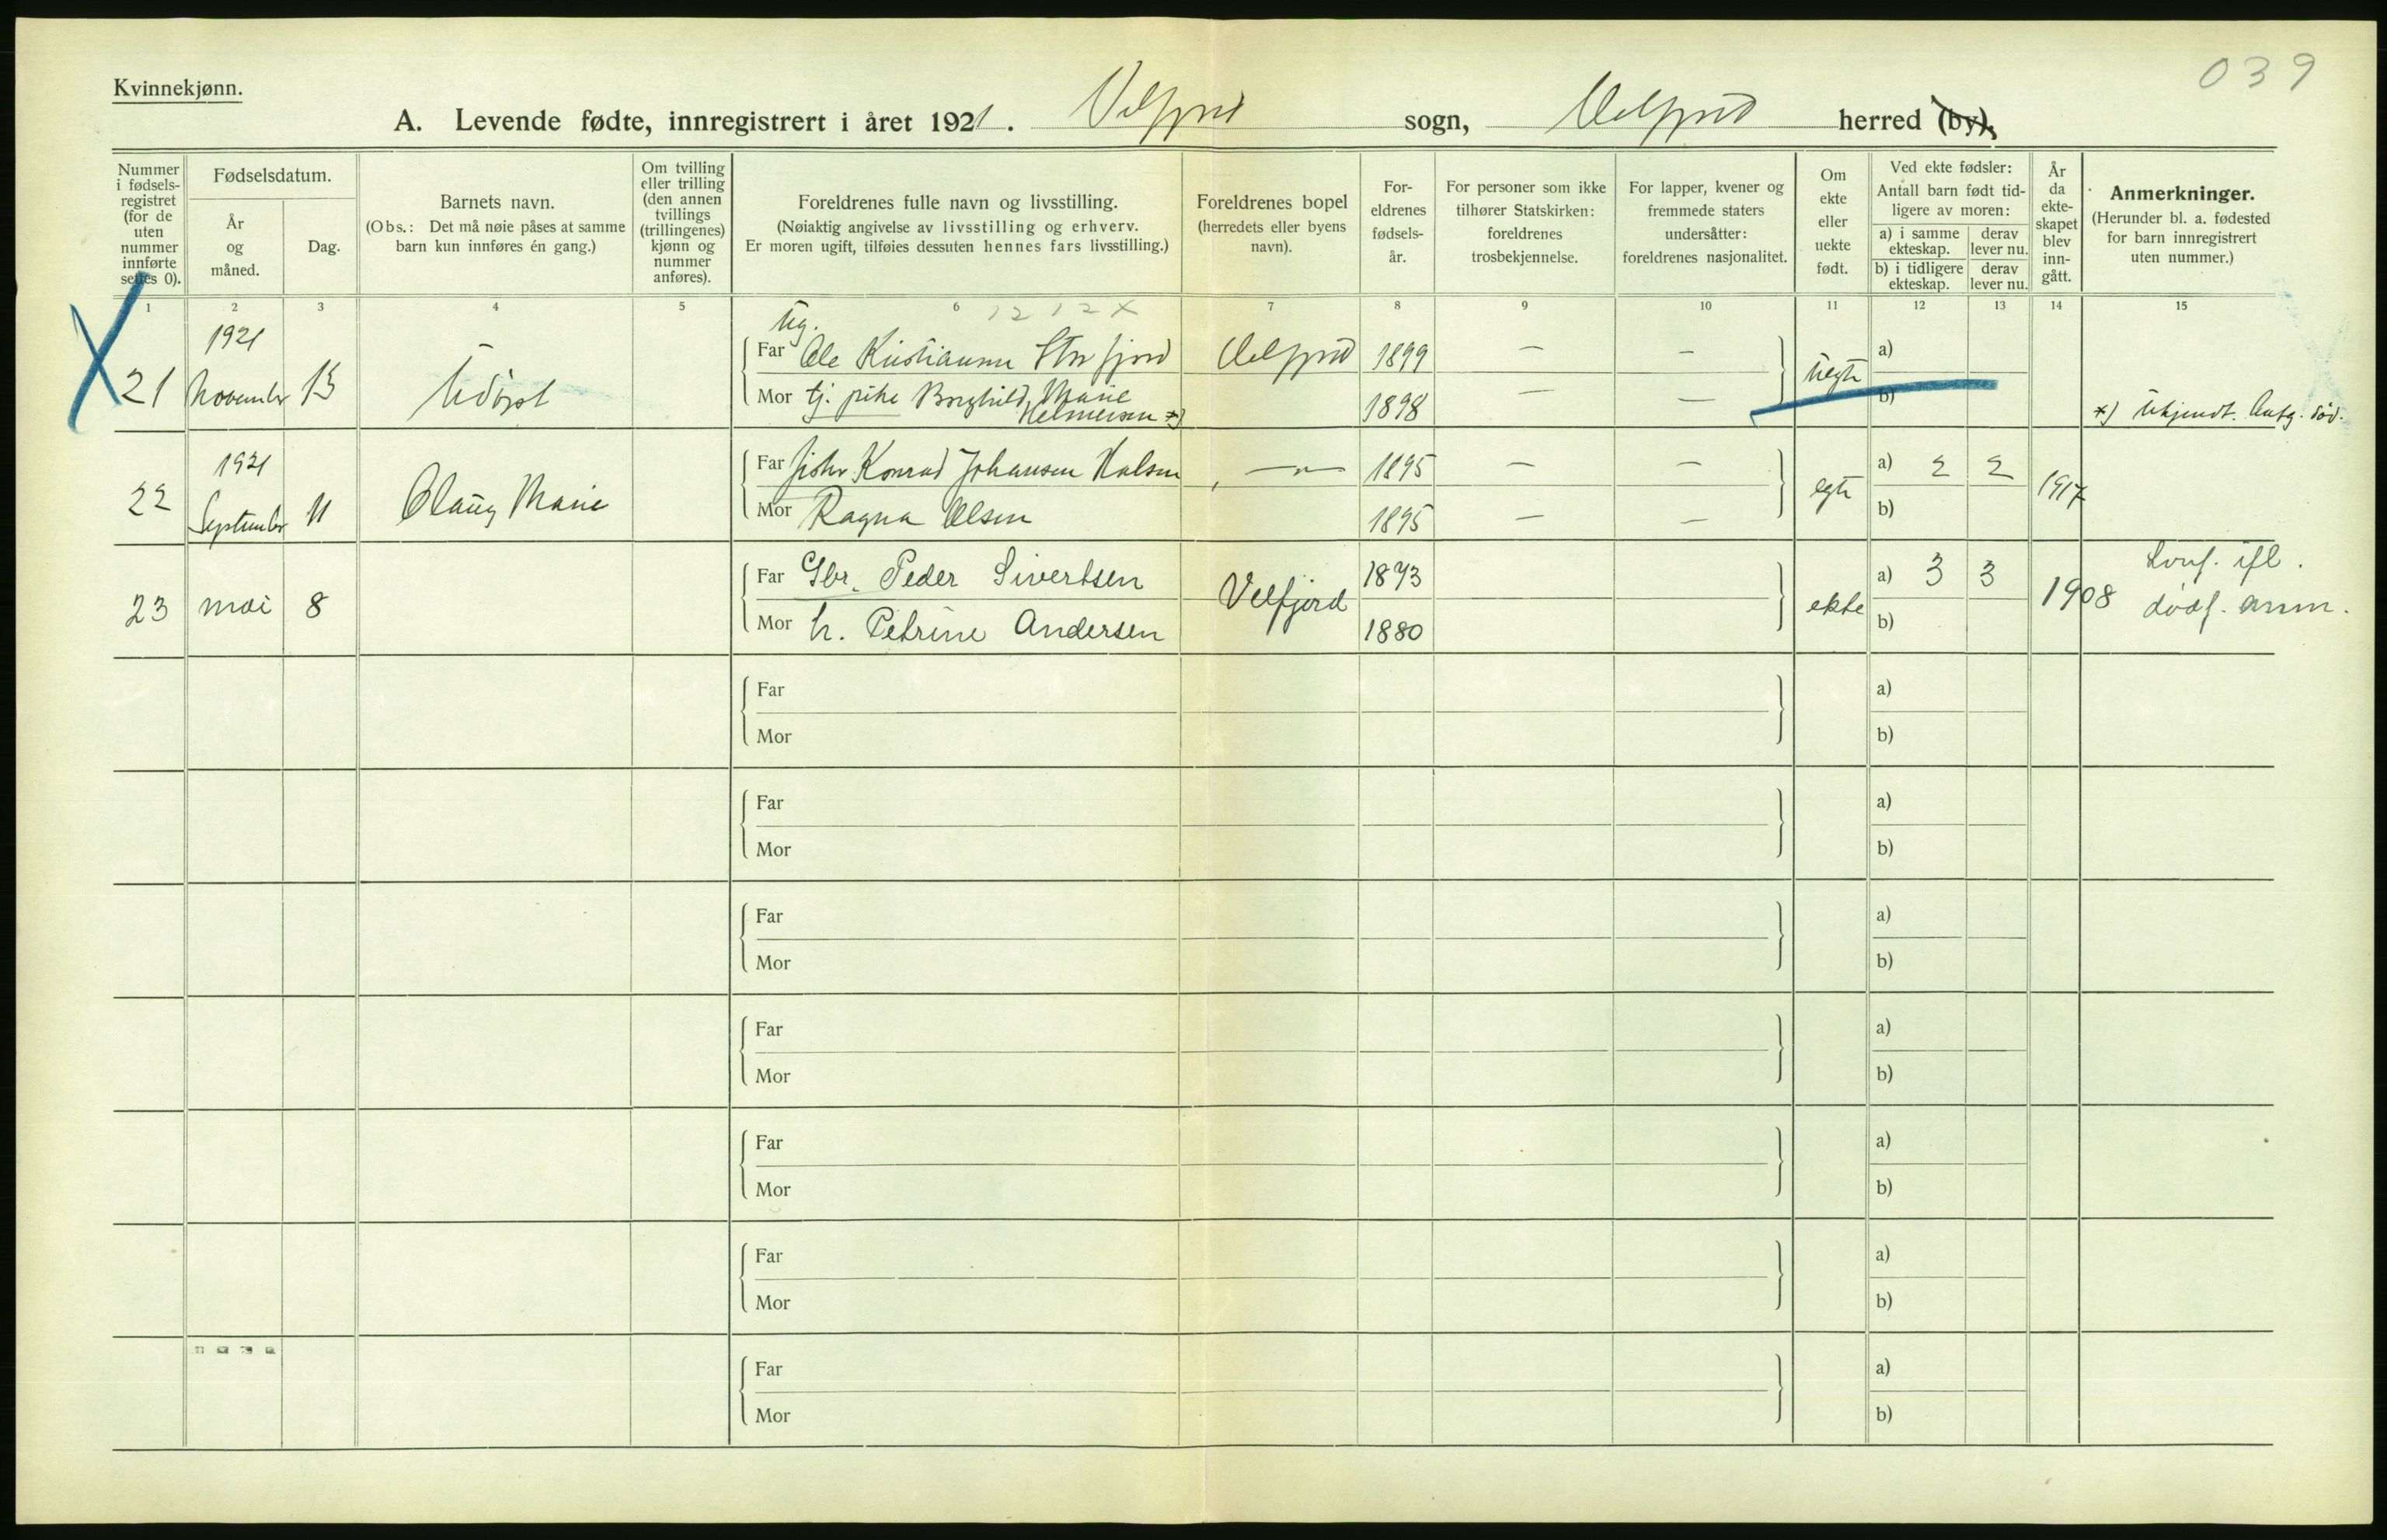 039
Kvinnekjønn.
A. Levende fødte, innregistrert i året 1921. Velfjord sogn, Velfjord herred (by),
Nummer i fødsels-registret (for de uten nummer innførte settes 0).
Fødselsdatum.
År og måned.
Dag.
Barnets navn.
(Obs.: Det må nøie påses at samme barn kun innføres én gang.)
Om tvilling eller trilling (den annen tvillings (trillingenes) kjønn og nummer anføres).
Foreldrenes fulle navn og livsstilling.
(Nøiaktig angivelse av livsstilling og erhverv.
Er moren ugift, tilføies dessuten hennes fars livsstilling.)
Foreldrenes bopel
(herredets eller byens navn).
For-eldrenes fødsels-år.
For personer som ikke tilhører Statskirken: foreldrenes trosbekjennelse.
For lapper, kvener og fremmede staters undersåtter: foreldrenes nasjonalitet.
Om ekte eller uekte født.
Ved ekte fødsler:
Antall barn født tid-ligere av moren:
a) i samme ekteskap.
derav lever nu.
b) i tidligere ekteskap.
derav lever nu.
År da ekte-skapet blev inn-gått.
Anmerkninger.
(Herunder bl. a. fødested for barn innregistrert uten nummer.)
1 2 3 4 5 6 7 8 9 10 11 12 13 14 15
1212X
1921
Ug.
Far Ole Kristiansen Storfjord Velfjord 1899 — — a)
21 November 13 Udöpt uegte
Mor tj. pike Borghild Marie Helmersen *) 1898 — — b) *) Ukjendt. Antg. död.
1921
Far fisker Konrad Johansen Halsen —"— 1895 — — a) 2 2
22 September 11 Olaug Marie egte 1917
Mor Ragna Olsen 1895 — — b)
Far Gbr. Peder Sivertsen 1873 a) 3 3
23 mai 8 Velfjord ekte 1908 ifl.
Mor h. Petrine Andersen 1880 b) dødf. anm.
Far a)
Mor b)
Far a)
Mor b)
Far a)
Mor b)
Far a)
Mor b)
Far a)
Mor b)
Far a)
Mor b)
Far a)
Mor b)